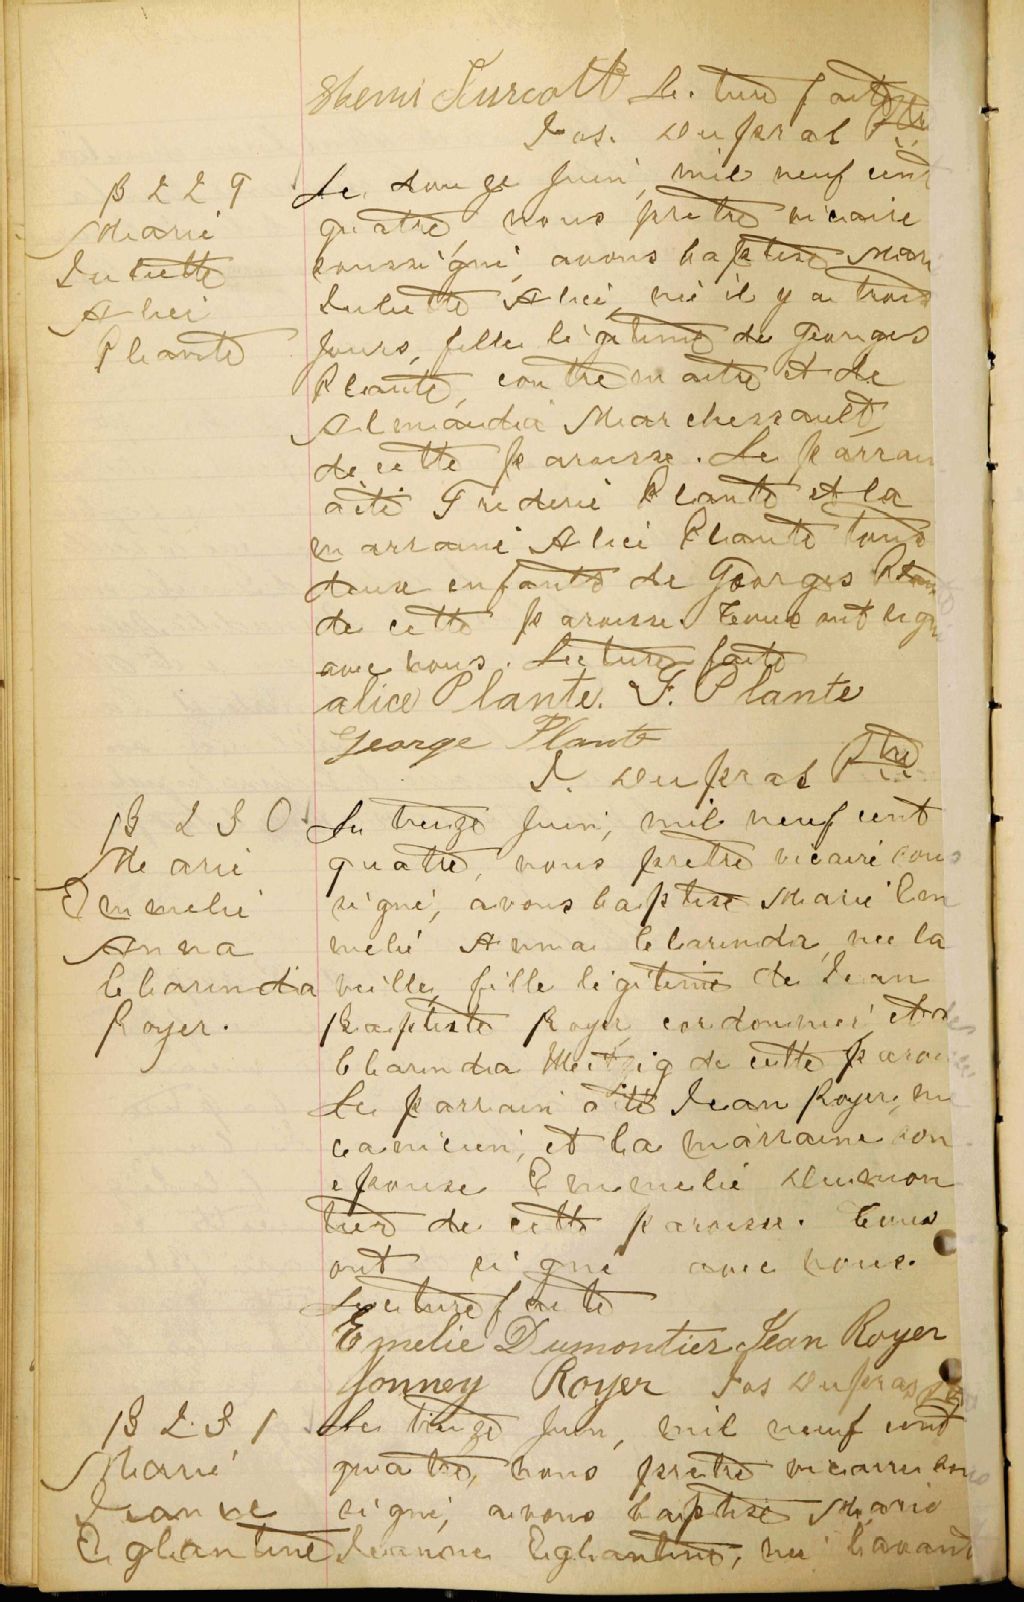 Turcott Lecture faite
Jos. Dupras Ptre
B 229
Marie
Juliette
Alice
Plante
Le douze Juin, mil neuf cent
quatre, nous prêtre vicaire
soussigné, avons baptisé Marie
Juliette Alice, née il y a trois
jours, fille légitime de Georges
Plante, contremaitre et de
Alméandia Marchessault
de cette paroisse. Le parrain
a été Frederic Plante et la
marraine Alice Plante tous
deux enfants de Georges Plante
de cette paroisse. Tous ont signé
avec nous. Lecture faite
alice Plante. F. Plante
George Plante
J. Dupras Ptre
B 230
Marie
Emmelie
Anna
Clarindia
Royer.
Le treize Juin, mil neuf cent
quatre, nous prêtre vicaire sous
signé, avons baptisé Marie Em
melie Anna Clarinda, née la
veille, fille légitime de Jean
Baptiste Royer, cordonnier, et de
Clarindia Metzig de cette paroisse
Le parrain a été Jean Royer, mé
canicien, et la marraine son
épouse Emmelie Dumon
tier de cette paroisse. Tous
ont signé avec nous.
Lecture faite
Emelie Dumontier Jean Royer
Jonney Royer Jos Dupras Ptre
B 231
Marie
Jeanne
Eglantine
Le treize Juin, mil neuf cent
quatre, nous prêtre vicaire sous
signé, avons baptisé Marie
Jeanne Eglantine, née l'avant